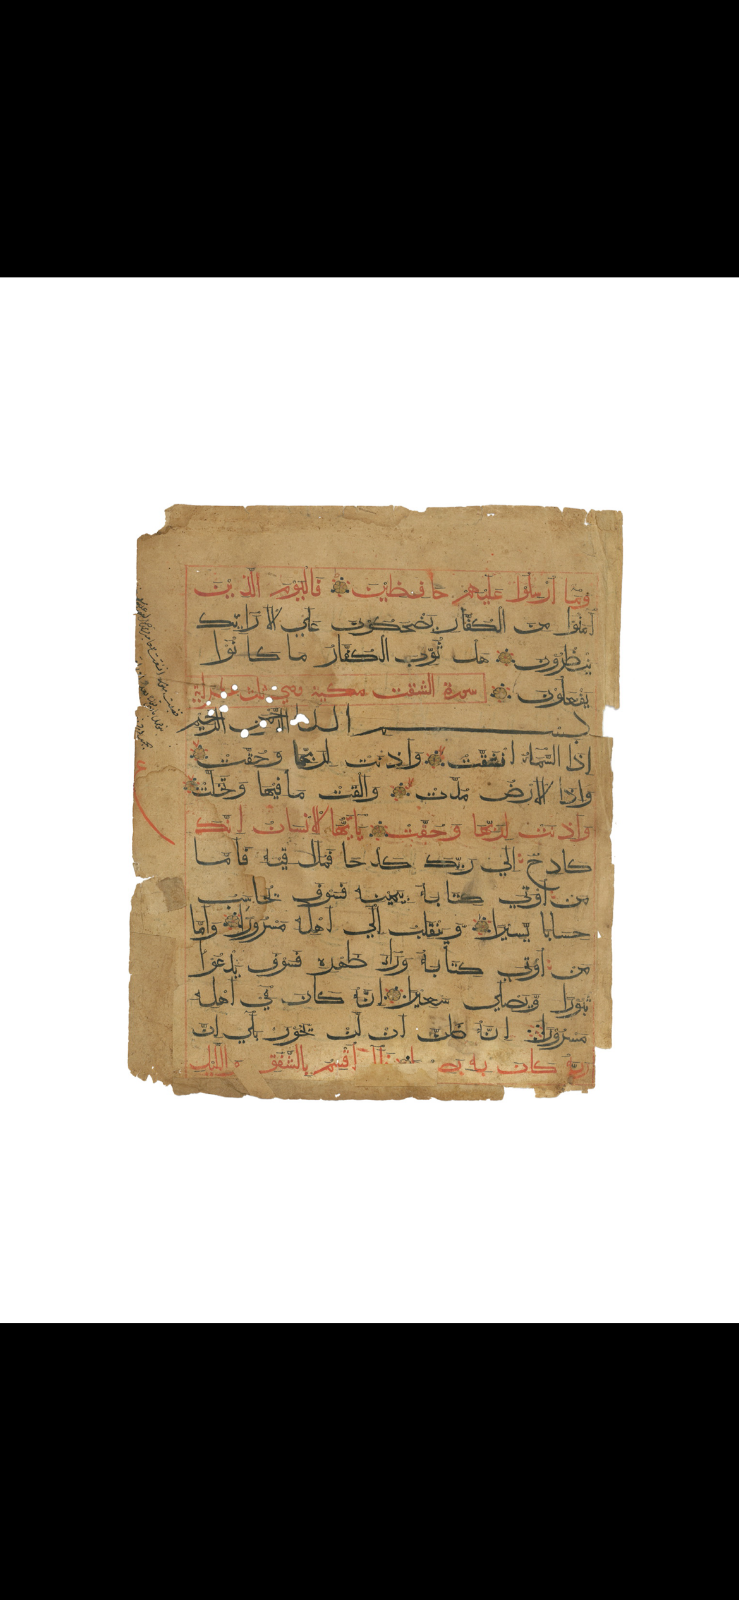 وما ارسلوا عليهم حافظين فاليوم الذين
امنوا من الكفار يضحكون علي الارايك
ينظرون هل ثوب الكفار ما كانوا
يفعلون سورة انشقت مكية وهي
بسم الله الرحمن الرحيم
اذا السماء انشقت واذنت لربها وحقت
واذا الارض مدت والقت ما فيها وتخلت
واذنت لربها وحقت يايها الانسان انك
كادح الي ربك كدحا فملاقيه فاما
من اوتي كتابه بيمينه فسوف يحاسب
حسابا يسيرا وينقلب الي اهله مسرورا واما
من اوتي كتابه وراء ظهره فسوف يدعوا
ثبورا ويصلي سعيرا انه كان في اهله
مسرورا انه ظن ان لن يحور بلي ان
ربه كان به اقسم بالشفق والليل